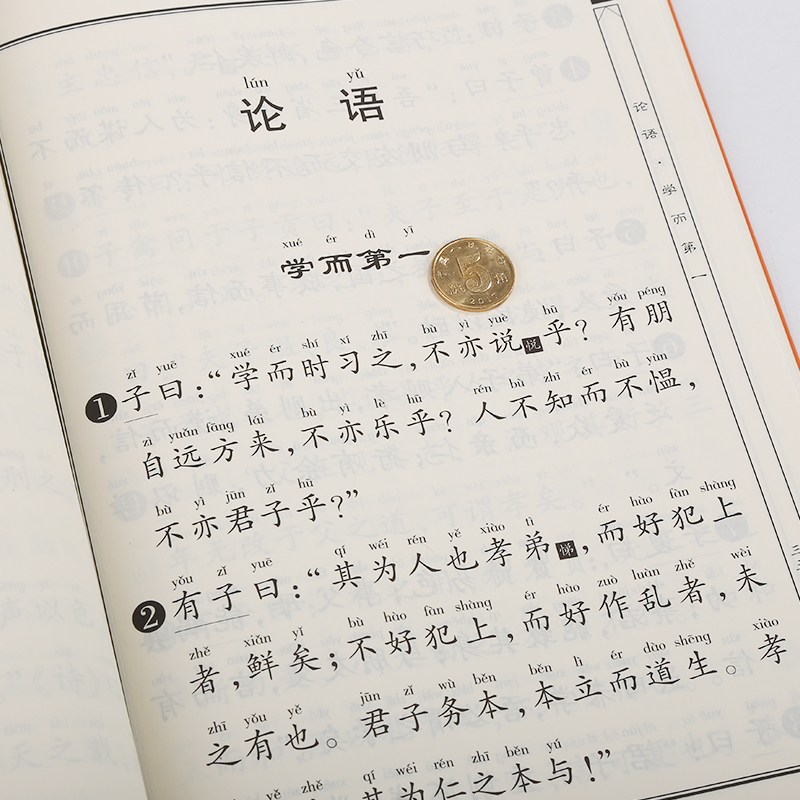 lún yǔ
论 语
xué ér dì yī
学而第一
zǐ yuē xué ér shí xí zhī bù yì yuè hū yǒu péng
❶子曰：“学而时习之，不亦说悦乎？有朋
zì yuǎn fāng lái bù yì lè hū rén bù zhī ér bù yùn
自远方来，不亦乐乎？人不知而不愠，
bù yì jūn zǐ hū
不亦君子乎？”
yǒu zǐ yuē qí wéi rén yě xiào tì ér hào fàn shàng
❷有子曰：“其为人也孝弟悌，而好犯上
zhě xiǎn yǐ bù hào fàn shàng ér hào zuò luàn zhě wèi
者，鲜矣；不好犯上，而好作乱者，未
zhī yǒu yě jūn zǐ wù běn běn lì ér dào shēng xiào
之有也。君子务本，本立而道生。孝
yě zhě qí wéi rén zhī běn yú
其为仁之本与！”
论语·学而第一
5
角
2017